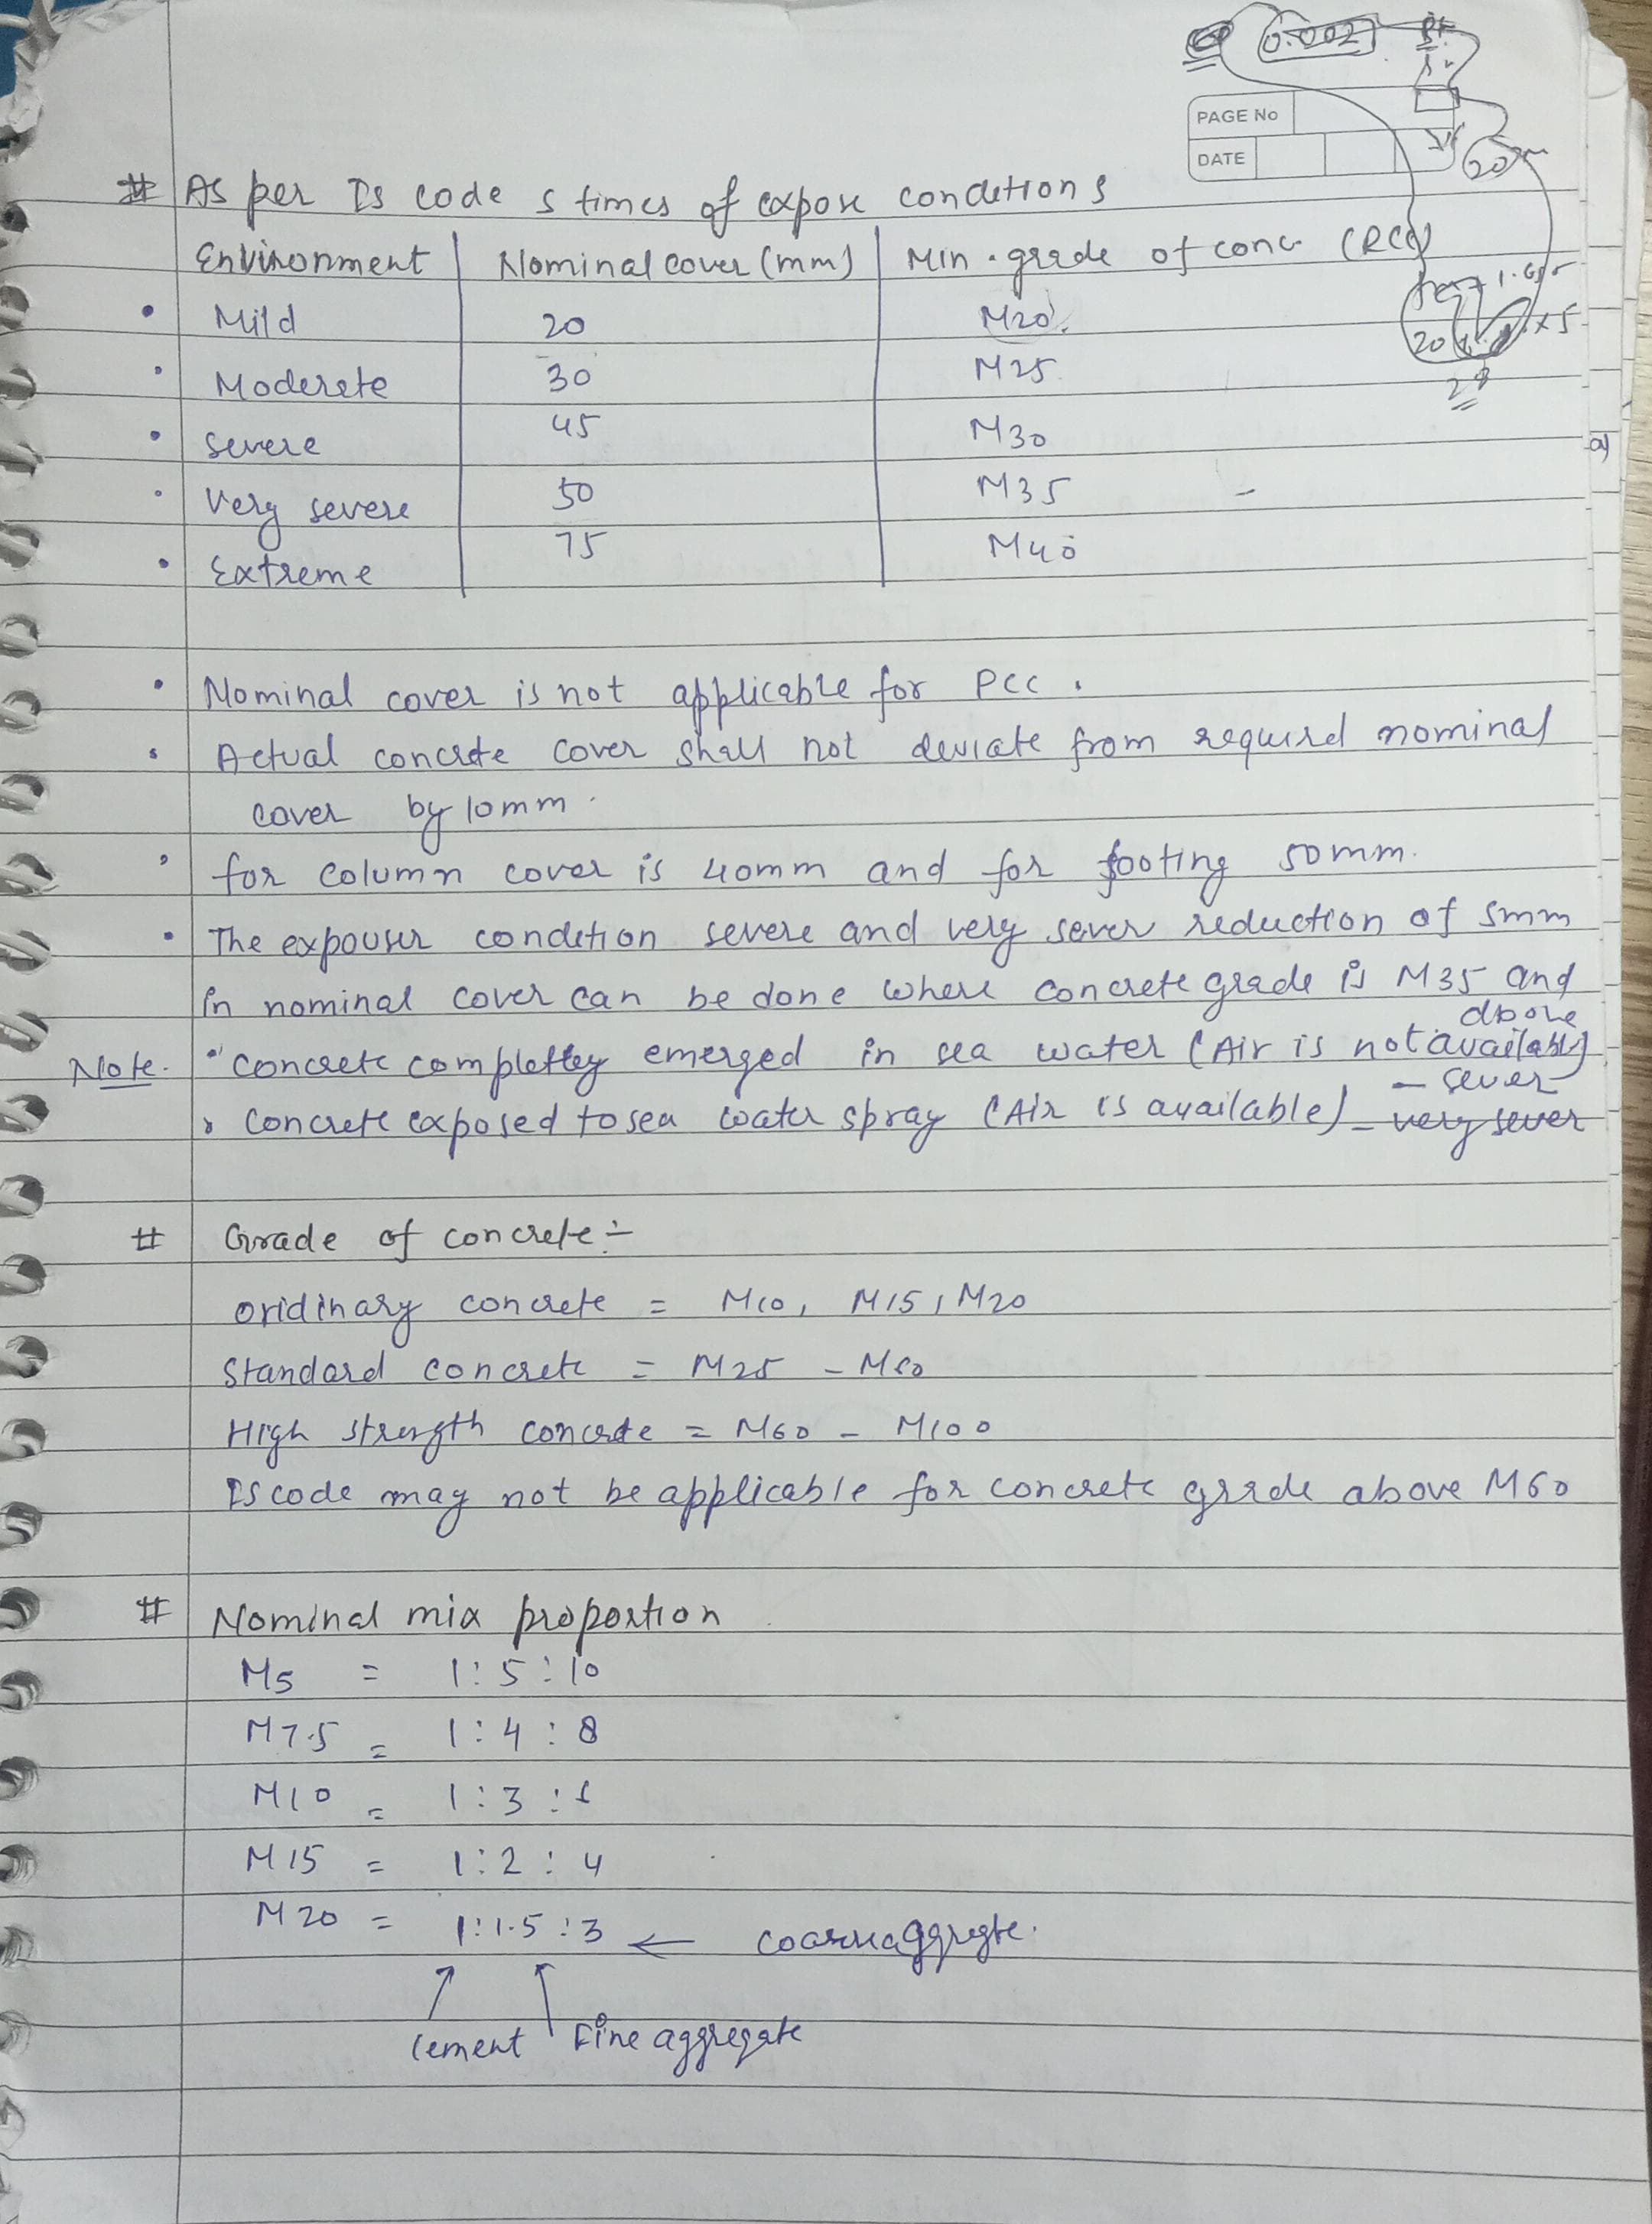 0.002
PAGE No
DATE
20
# As per Is code 5 times of expose conditions
Environment | Nominal cover (mm) | Min. grade of conc. (RCC)
• Mild 20 M20.
• Moderete 30 M25
• severe 45 M30
• Very severe 50 M35 -
• Extreme 75 M40
20 x5
28
a)
• Nominal cover is not applicable for PCC.
• Actual concrete cover shall not deviate from required nominal
cover by 10mm.
• for column cover is 40mm and for footing 50mm.
• The expouser condition severe and very sever reduction of 5mm
in nominal cover can be done where concrete grade is M35 and
above
Note. • concrete completley emerged in sea water (Air is not available)
- sever
• concrete exposed to sea water spray (Air is available) - very sever
# Grade of concrete :-
oridinary concrete = M10, M15, M20
Standard concrete = M25 - M60
High strength concrete = M60 - M100
IS code may not be applicable for concrete grade above M60
# Nominal mix proportion
M5 = 1:5:10
M7.5 = 1:4:8
M10 = 1:3:6
M15 = 1:2:4
M20 = 1:1.5:3 ← coarse aggregte.
cement Fine aggregate